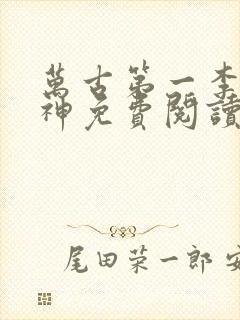 萬古第一李
神免費閱讀
尾田荣一郎 安